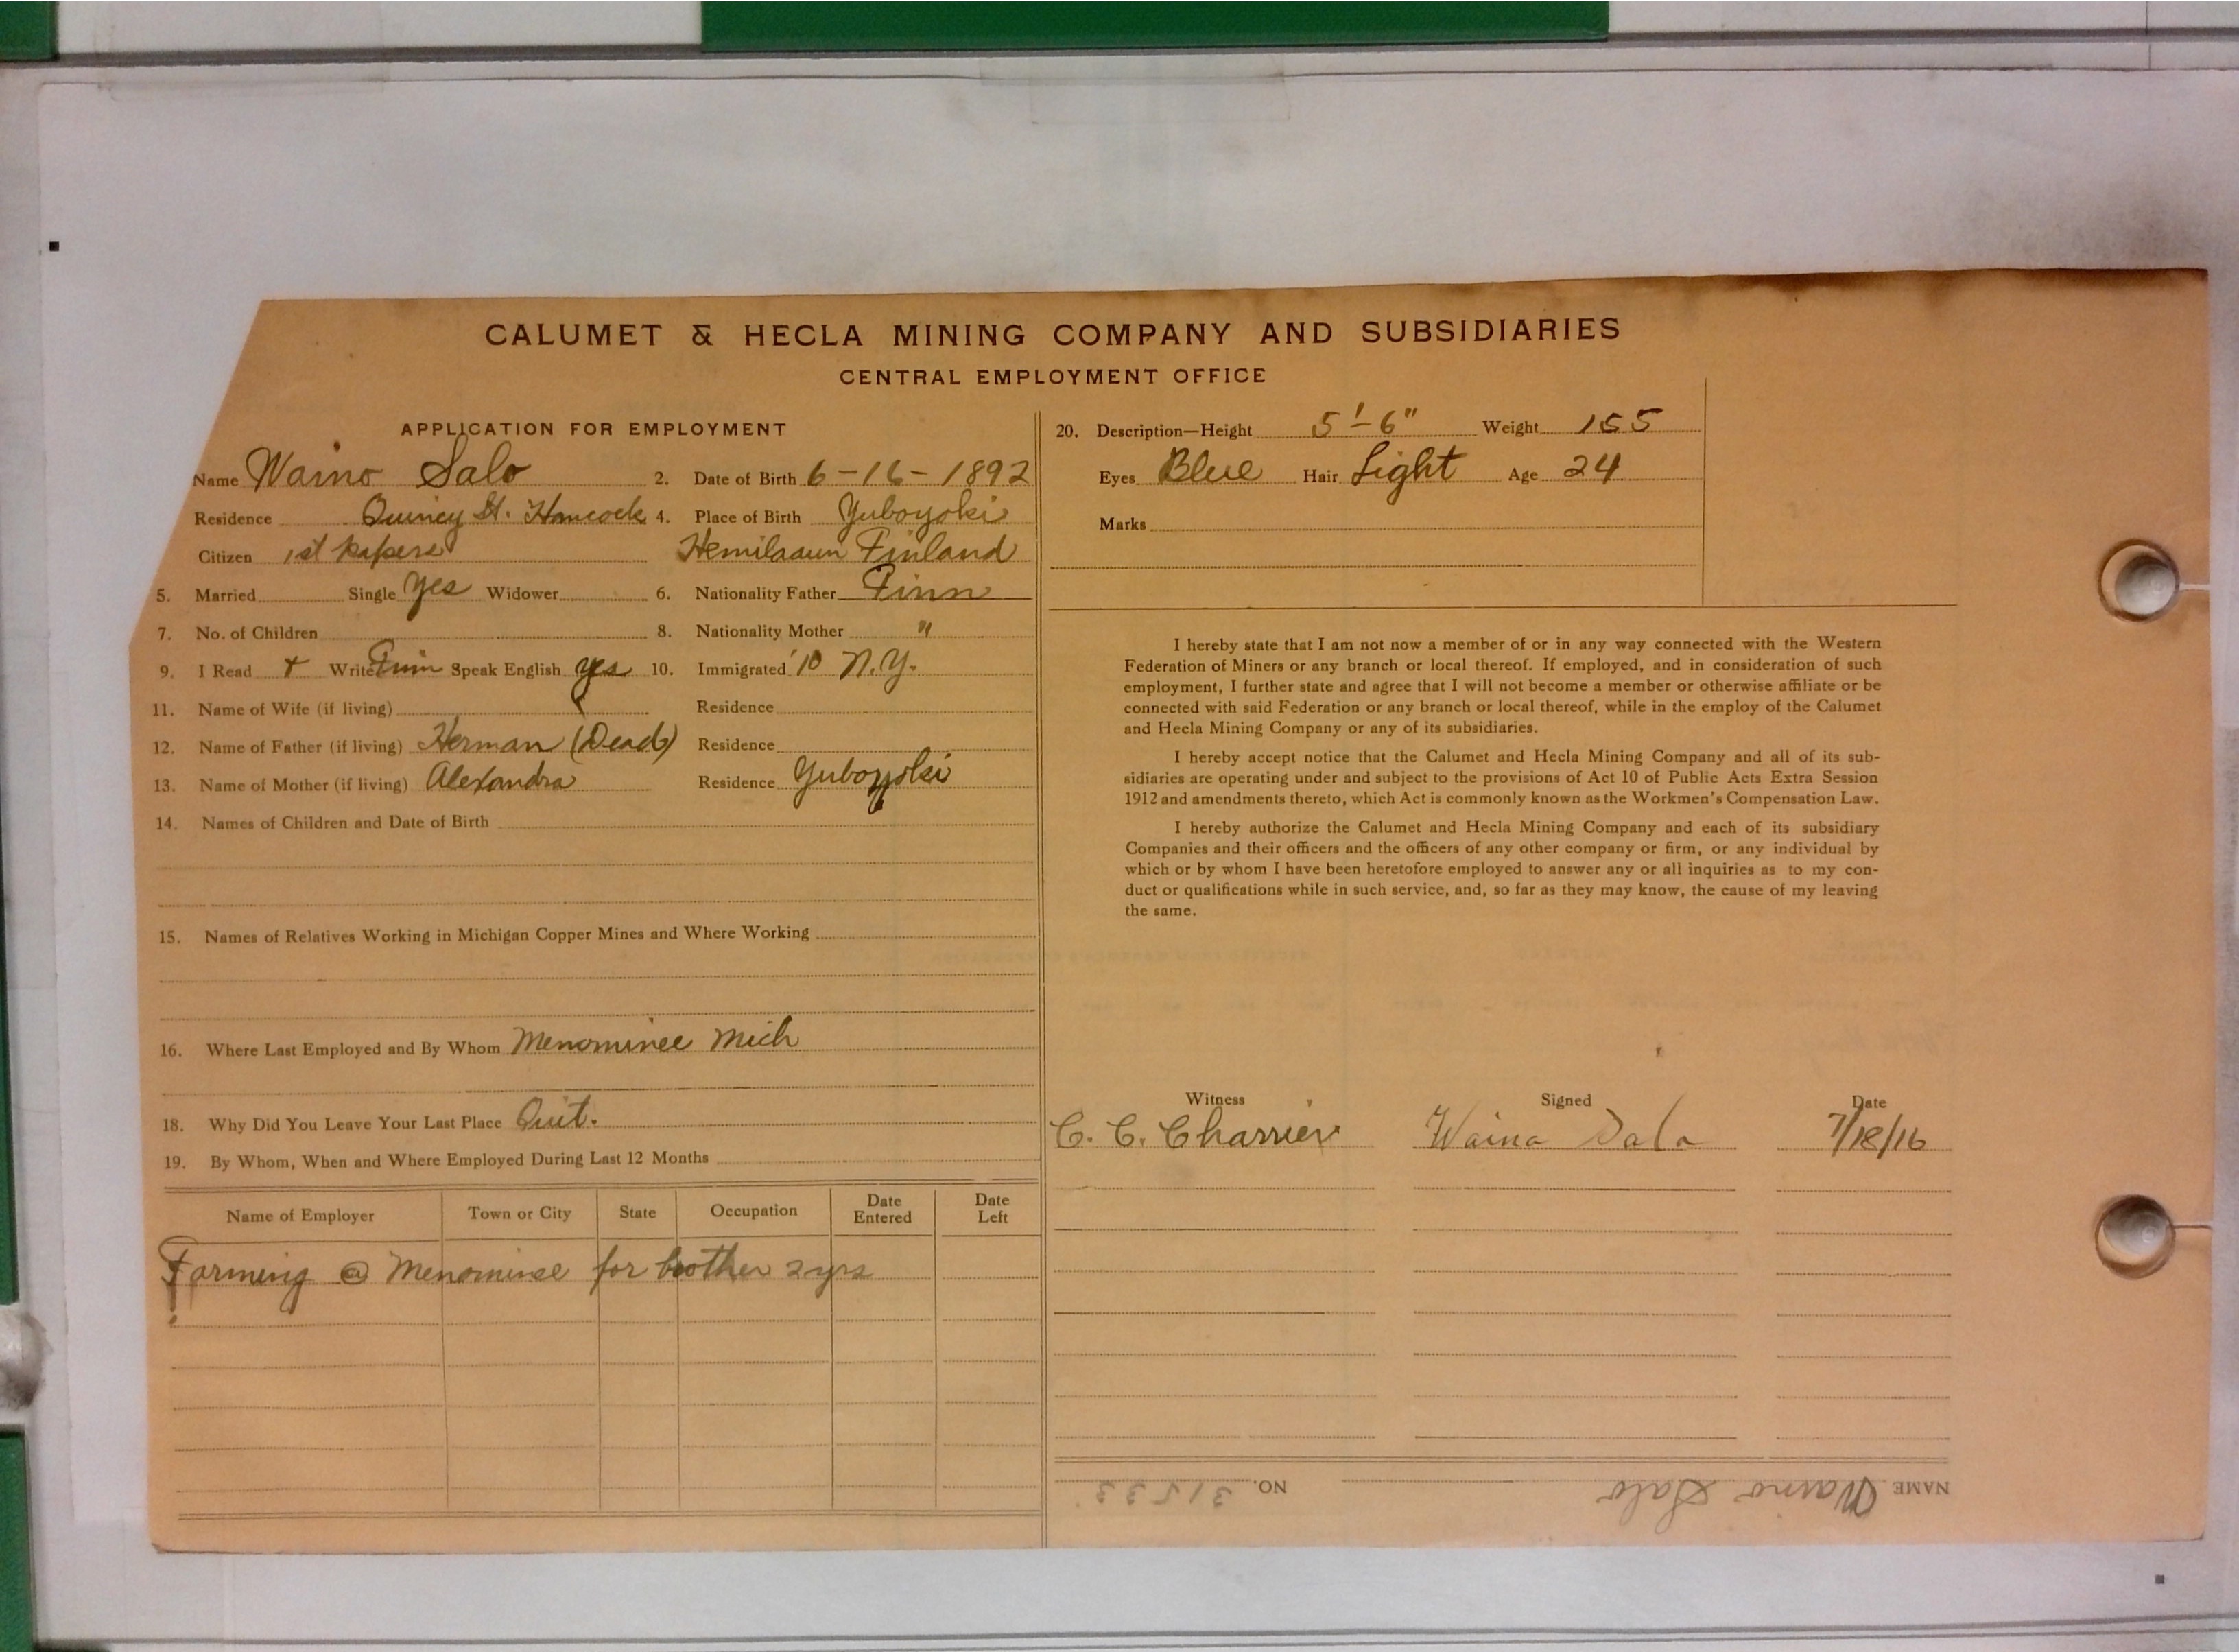 CALUMET & HECLA MINING COMPANY AND SUBSIDIARIES
CENTRAL EMPLOYMENT OFFICE
APPLICATION FOR EMPLOYMENT
Name Waino Salo 2. Date of Birth 6-16-1892
Residence Quincy St. Hancock 4. Place of Birth Yuboyoki
Citizen 1st papers Hemilaaun Finland
5. Married Single Yes Widower 6. Nationality Father Finn
7. No. of Children 8. Nationality Mother "
9. I Read + Write Finn Speak English yes 10. Immigrated '10 N.Y.
11. Name of Wife (if living) Residence
12. Name of Father (if living) Herman (Dead) Residence
13. Name of Mother (if living) Alexandra Residence Yuboyoki
14. Names of Children and Date of Birth
15. Names of Relatives Working in Michigan Copper Mines and Where Working
16. Where Last Employed and By Whom Menominee Mich
18. Why Did You Leave Your Last Place Quit.
19. By Whom, When and Where Employed During Last 12 Months
Name of Employer Town or City State Occupation Date Entered Date Left
Farming @ Menominee for brother 2 yrs
20. Description—Height 5'-6" Weight 155
Eyes Blue Hair Light Age 24
Marks
I hereby state that I am not now a member of or in any way connected with the Western
Federation of Miners or any branch or local thereof. If employed, and in consideration of such
employment, I further state and agree that I will not become a member or otherwise affiliate or be
connected with said Federation or any branch or local thereof, while in the employ of the Calumet
and Hecla Mining Company or any of its subsidiaries.
I hereby accept notice that the Calumet and Hecla Mining Company and all of its sub-
sidiaries are operating under and subject to the provisions of Act 10 of Public Acts Extra Session
1912 and amendments thereto, which Act is commonly known as the Workmen's Compensation Law.
I hereby authorize the Calumet and Hecla Mining Company and each of its subsidiary
Companies and their officers and the officers of any other company or firm, or any individual by
which or by whom I have been heretofore employed to answer any or all inquiries as to my con-
duct or qualifications while in such service, and, so far as they may know, the cause of my leaving
the same.
Witness Signed Date
C. C. Charrier Waina Sala 7/18/16
NAME Waino Salo NO. 31533